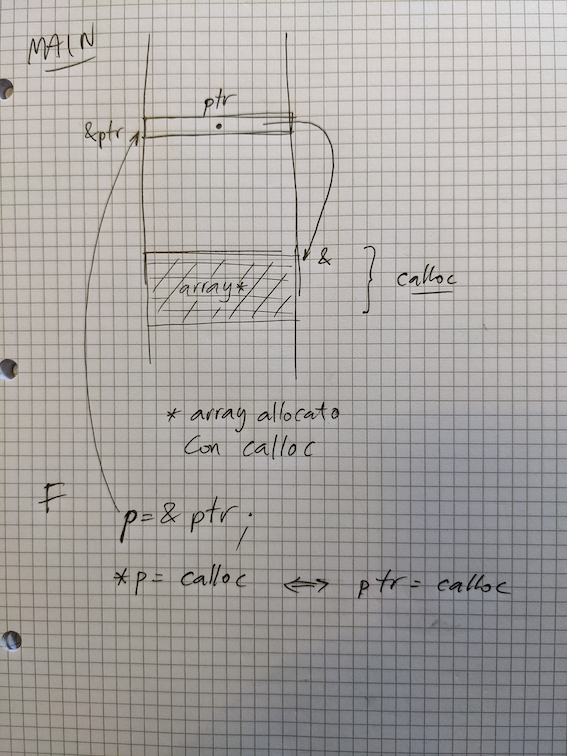 MAIN
ptr
&ptr
&
array*
calloc
* array allocato
con calloc
F
p=& ptr;
*p= calloc <=> ptr= calloc